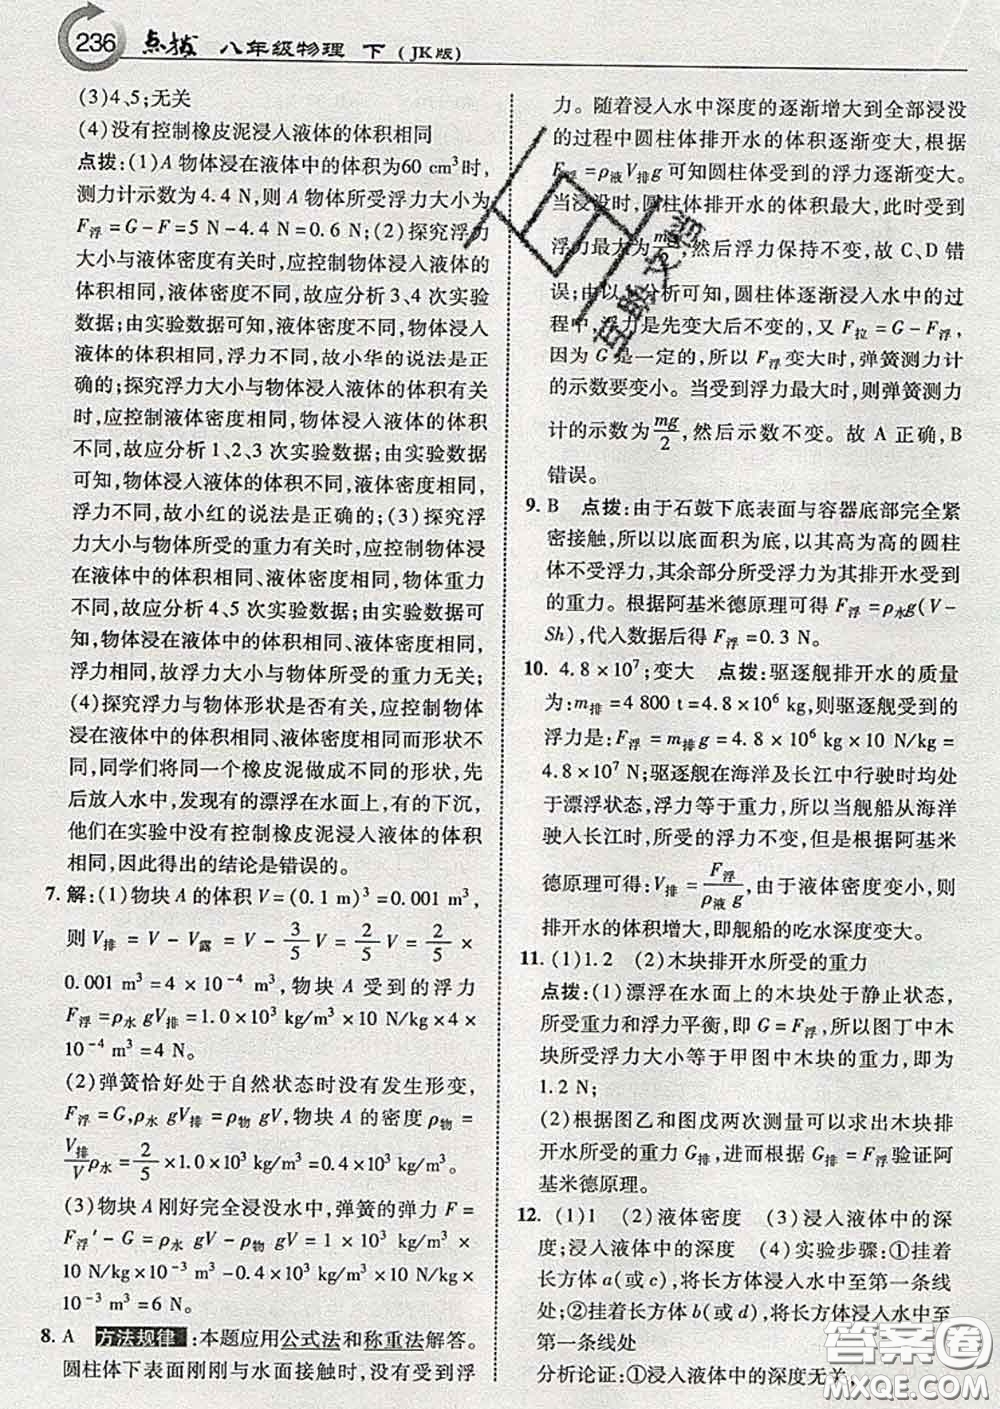 236 点拨 八年级物理 下 (JK版)
(3)4、5;无关
(4)没有控制橡皮泥浸入液体的体积相同
点拨:(1)A物体浸在液体中的体积为60 cm³时,
测力计示数为4.4 N,则A物体所受浮力大小为
F浮=G-F=5 N-4.4 N=0.6 N;(2)探究浮力
大小与液体密度有关时,应控制物体浸入液体的
体积相同,液体密度不同,故应分析3、4次实验
数据;由实验数据可知,液体密度不同,物体浸入
液体的体积相同,浮力不同,故小华的说法是正
确的;探究浮力大小与物体浸入液体的体积有关
时,应控制液体密度相同,物体浸入液体的体积
不同,故应分析1、2、3次实验数据;由实验数据
可知,物体浸入液体的体积不同,液体密度相同,
浮力不同,故小红的说法是正确的;(3)探究浮
力大小与物体所受的重力有关时,应控制物体浸
在液体中的体积相同、液体密度相同,物体重力
不同,故应分析4、5次实验数据;由实验数据可
知,物体浸在液体中的体积相同、液体密度相同,
浮力相同,故浮力大小与物体所受的重力无关;
(4)探究浮力与物体形状是否有关,应控制物体
浸在液体中的体积相同、液体密度相同而形状不
同,同学们将同一个橡皮泥做成不同的形状,先
后放入水中,发现有的漂浮在水面上,有的下沉,
他们在实验中没有控制橡皮泥浸入液体的体积
相同,因此得出的结论是错误的。
7. 解:(1)物块A的体积V=(0.1 m)³=0.001 m³,
则V排=V-V露=V-3/5V=2/5V=2/5×
0.001 m³=4×10⁻⁴ m³,物块A受到的浮力
F浮=ρ水gV排=1.0×10³ kg/m³×10 N/kg×4×
10⁻⁴ m³=4 N。
(2)弹簧恰好处于自然状态时没有发生形变,
F浮=G,ρ水gV排=ρ物gV,物块A的密度ρ物=
V排/Vρ水=2/5×1.0×10³ kg/m³=0.4×10³ kg/m³。
(3)物块A刚好完全浸没水中,弹簧的弹力F=
F浮′-G=ρ水gV-ρ物gV=1.0×10³ kg/m³×10
N/kg×10⁻³ m³-0.4×10³ kg/m³×10 N/kg×
10⁻³ m³=6 N。
8. A 方法规律:本题应用公式法和称重法解答。
圆柱体下表面刚刚与水面接触时,没有受到浮
力。随着浸入水中深度的逐渐增大到全部浸没
的过程中圆柱体排开水的体积逐渐变大,根据
F浮=ρ液V排g可知圆柱体受到的浮力逐渐变大。
当浸没时,圆柱体排开水的体积最大,此时受到
浮力最大为mg/2,然后浮力保持不变,故C、D错
误;由以上分析可知,圆柱体逐渐浸入水中的过
程中,浮力是先变大后不变的,又F拉=G-F浮,
因为G是一定的,所以F浮变大时,弹簧测力计
的示数要变小。当受到浮力最大时,则弹簧测力
计的示数为mg/2,然后示数不变。故A正确,B
错误。
9. B 点拨:由于石鼓下底表面与容器底部完全紧
密接触,所以以底面积为底,以其高为高的圆柱
体不受浮力,其余部分所受浮力为其排开水受到
的重力。根据阿基米德原理可得F浮=ρ水g(V-
Sh),代入数据后得F浮=0.3 N。
10. 4.8×10⁷;变大 点拨:驱逐舰排开水的质量
为:m排=4 800 t=4.8×10⁶ kg,则驱逐舰受到的
浮力是:F浮=m排g=4.8×10⁶ kg×10 N/kg=
4.8×10⁷ N;驱逐舰在海洋及长江中行驶时均处
于漂浮状态,浮力等于重力,所以当舰船从海洋
驶入长江时,所受的浮力不变,但是根据阿基米
德原理可得:V排=F浮/ρ液g,由于液体密度变小,则
排开水的体积增大,即舰船的吃水深度变大。
11. (1)1.2 (2)木块排开水所受的重力
点拨:(1)漂浮在水面上的木块处于静止状态,
所受重力和浮力平衡,即G=F浮,所以图丁中木
块所受浮力大小等于甲图中木块的重力,即为
1.2 N;
(2)根据图乙和图戊两次测量可以求出木块排
开水所受的重力G排,进而根据G排=F浮验证阿
基米德原理。
12. (1)1 (2)液体密度 (3)浸入液体中的深
度;浸入液体中的深度 (4)实验步骤:①挂着
长方体a(或c),将长方体浸入水中至第一条线
处;②挂着长方体b(或d),将长方体浸入水中至
第一条线处
分析论证:①浸入液体中的深度无关,
答案圈
MXQE.COM